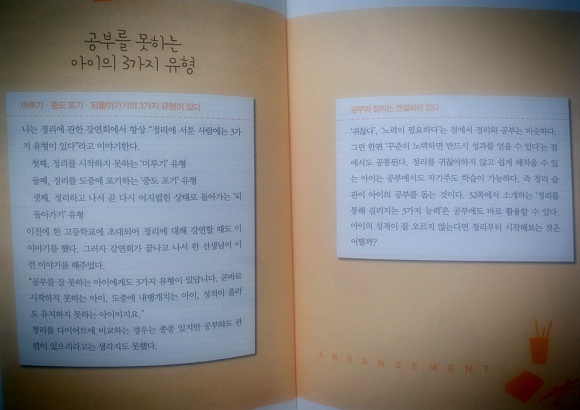 공부를 못하는
아이의 3가지 유형
미루기 · 중도 포기 · 되돌아가기의 3가지 유형이 있다
나는 정리에 관한 강연회에서 항상 “정리에 서툰 사람에는 3가
지 유형이 있다”라고 이야기한다.
첫째, 정리를 시작하지 못하는 ‘미루기’ 유형
둘째, 정리를 도중에 포기하는 ‘중도 포기’ 유형
셋째, 정리하고 나서 곧 다시 어지럽힌 상태로 돌아가는 ‘되
돌아가기’ 유형
이전에 한 고등학교에 초대되어 정리에 대해 강연할 때도 이
이야기를 했다. 그러자 강연회가 끝나고 나서 한 선생님이 이
런 이야기를 해주었다.
“공부를 잘 못하는 아이에게도 3가지 유형이 있답니다. 곧바로
시작하지 못하는 아이, 도중에 내팽개치는 아이, 성적이 올라
도 유지하지 못하는 아이이지요.”
정리를 다이어트에 비교하는 경우는 종종 있지만 공부와도 관
련이 있으리라고는 생각지도 못했다.
공부와 정리는 연결되어 있다
‘귀찮다’, ‘노력이 필요하다’는 점에서 정리와 공부는 비슷하다.
그런 한편 ‘꾸준히 노력하면 반드시 성과를 얻을 수 있다’는 점
에서도 공통된다. 정리를 귀찮아하지 않고 쉽게 해치울 수 있
는 아이는 공부에서도 자기주도 학습이 가능하다. 즉 정리 습
관이 아이의 공부를 돕는 것이다. 32쪽에서 소개하는 ‘정리를
통해 길러지는 3가지 능력’은 공부에도 바로 활용할 수 있다.
아이의 성적이 잘 오르지 않는다면 정리부터 시작해보는 것은
어떨까?
ARRANGEMENT